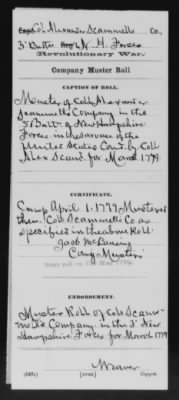 Capt. Col. Alexander Scammell's Co.,
3' Batt. Reg't N. H. Forces
Revolutionary War.
Company Muster Roll
CAPTION OF ROLL.
Muster of Coll. Alexander
Scammells Company in the
3 Batt. of New Hampshire
Forces in the service of the
United States Com'd by Coll
Alex Scam'l for March 1779.
CERTIFICATE.
Camp April 1. 1779 Mustered
then Coll Scammells Co as
specified in the above Roll.
Jacob McLansing
Com'y Musters
ENDORSEMENT.
Muster Roll of Col Scam-
mells Company in the 3' New
Hampshire Forces for March 1779
Weaver
Copyist.